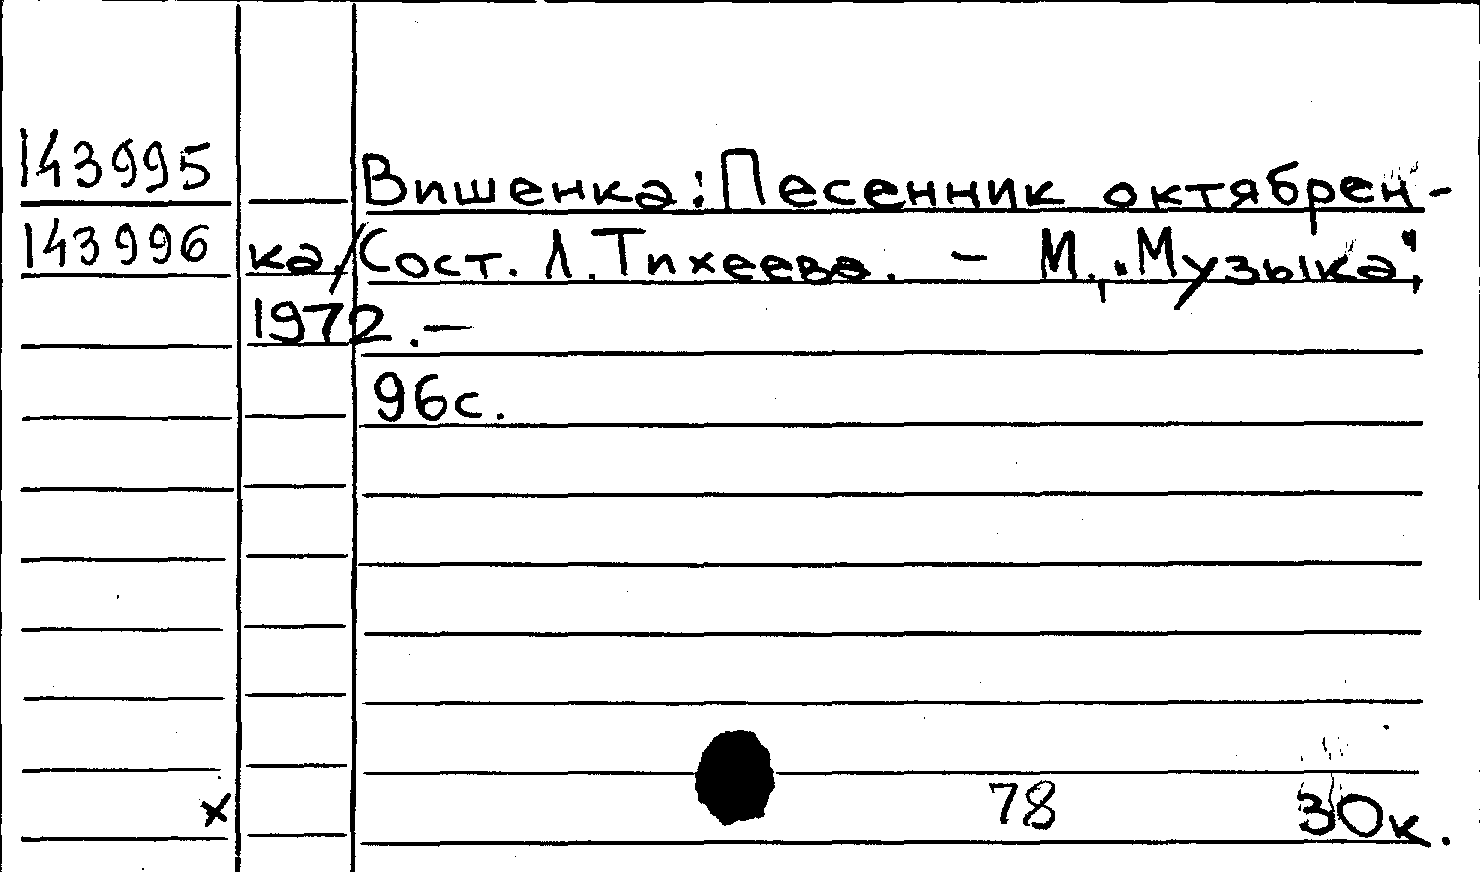 143995 Вишенка: Песенник октябрен-
143996 ка/Сост. Л. Тихеева. – М., „Музыка",
1972. –
96с.
х 78 30к.